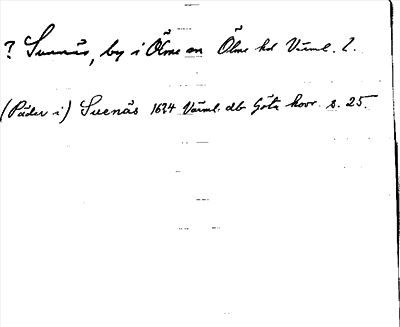 ? Svenås, by i Ölme sn Ölme hd Värml. l.
(Päder i) Suenås 1624 Värml. db Göta hovr. s. 25.